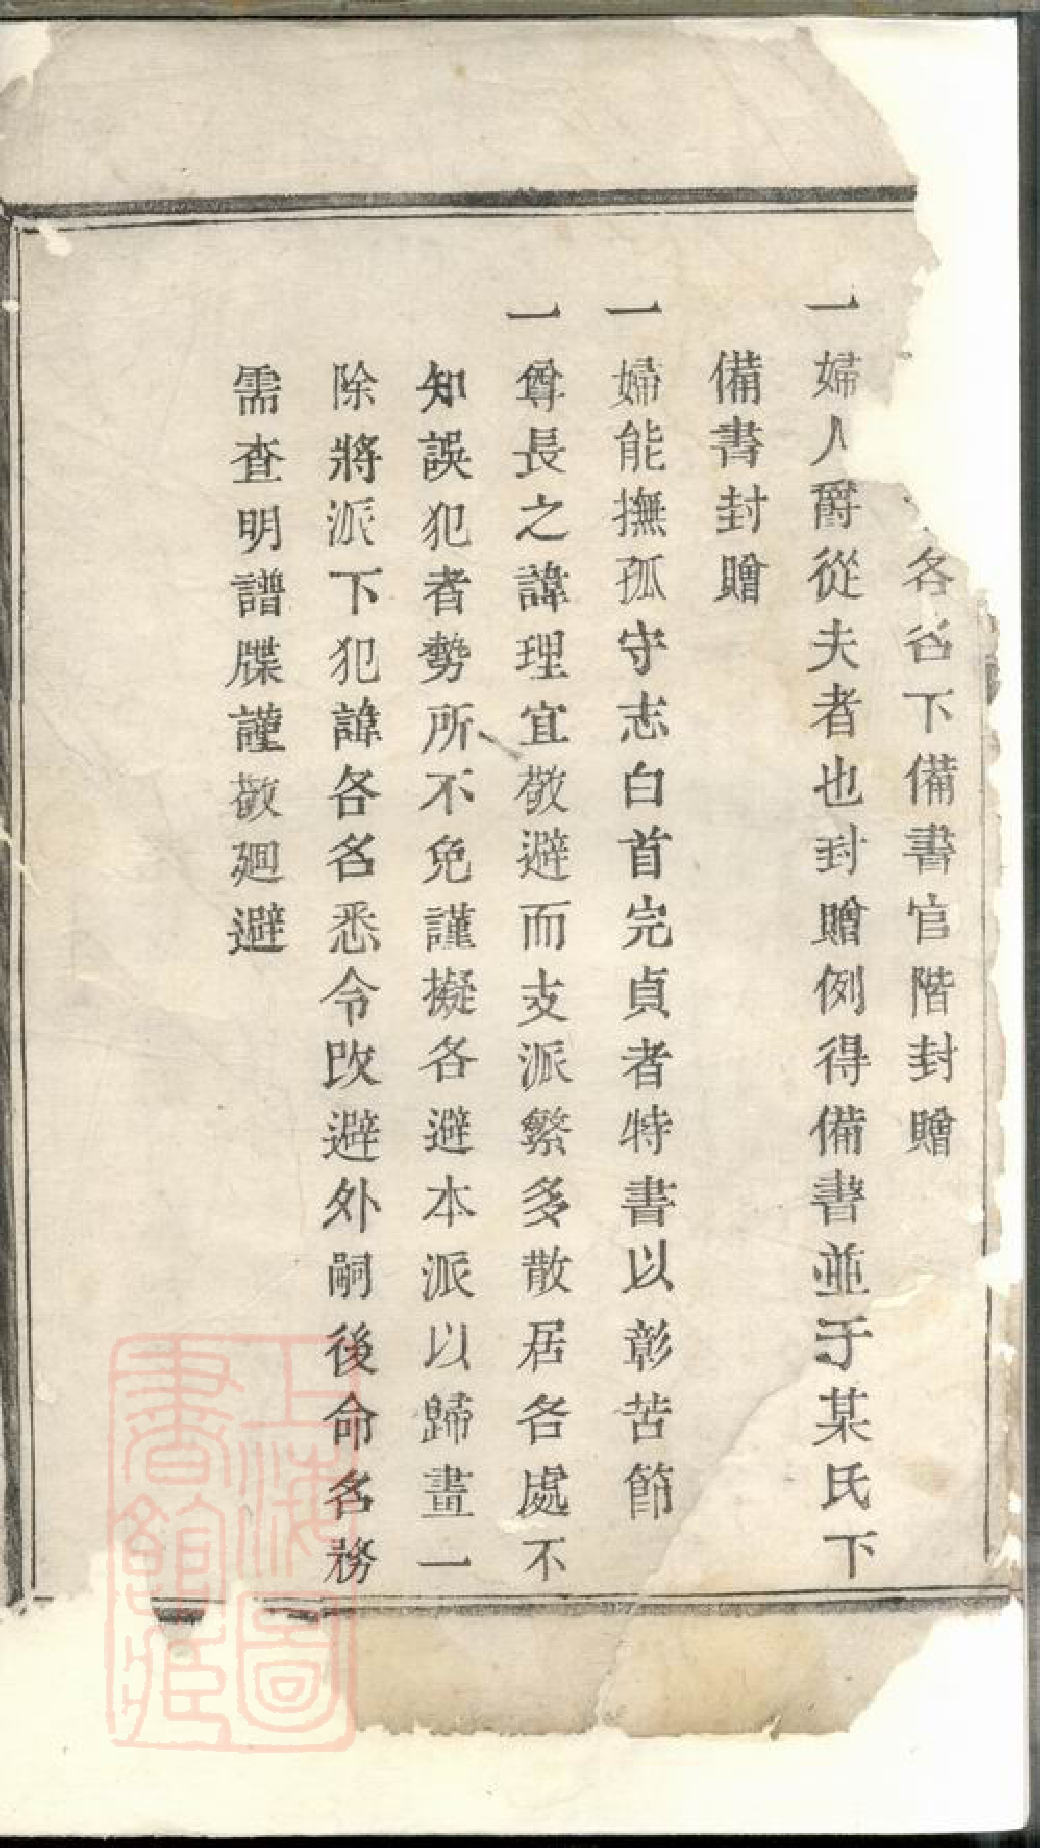 各名下備書官階封贈
一婦人爵從夫者也封贈例得備書並于某氏下
備書封贈
一婦能撫孤守志白首完貞者特書以彰苦節
一尊長之諱理宜敬避而支派繁多散居各處不
知誤犯者勢所不免謹擬各避本派以歸畫一
除將派下犯諱各名悉令改避外嗣後命名務
需查明譜牒謹敬廻避
上海圖
書館藏